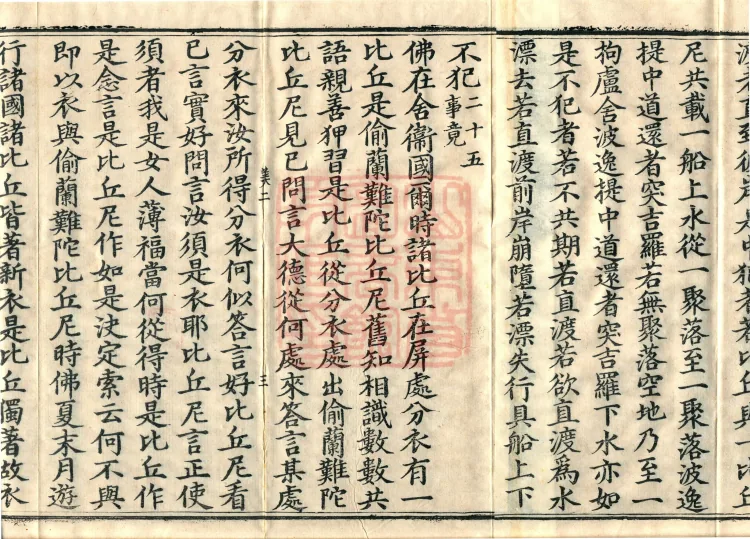 尼共載一船上水從一聚落至一聚落波逸
提中道還者突吉羅若無聚落空地乃至一
拘盧舍波逸提中道還者突吉羅下水亦如
是不犯者若不共期若直渡若欲直渡爲水
漂去若直渡前岸崩墮若漂失行具船上下
不犯二十五事竟
佛在舍衞國爾時諸比丘在屏處分衣有一
比丘是偷蘭難陀比丘尼舊知相識數數共
語親善狎習是比丘從分衣處出偷蘭難陀
比丘尼見已問言大德從何處來答言某處
分衣來汝所得分衣何似答言好比丘尼看
已言實好問言汝須是衣耶比丘尼言正使
須者我是女人薄福當何從得時是比丘作
是念言是比丘尼作如是決定索云何不與
即以衣與偷蘭難陀比丘尼時佛夏末月遊
行諸國諸比丘皆著新衣是比丘獨著故衣